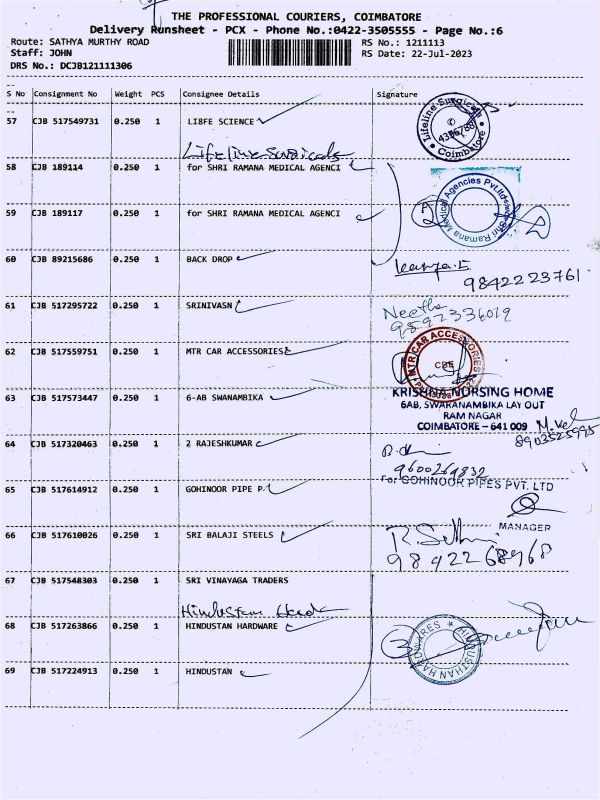 THE PROFESSIONAL COURIERS, COIMBATORE
Delivery Runsheet - PCX - Phone No.:0422-3505555 - Page No.:6
Route: SATHYA MURTHY ROAD RS No.: 1211113
Staff: JOHN RS Date: 22-Jul-2023
DRS No.: DCJB121111306
S No Consignment No Weight PCS Consignee Details Signature
57 CJB 517549731 0.250 1 LI8FE SCIENCE
Lifeline Surgicals Coimbatore
Lifeline Surgicals
58 CJB 189114 0.250 1 for SHRI RAMANA MEDICAL AGENCI
Shri Ramana Medical Agencies Pvt.Ltd
59 CJB 189117 0.250 1 for SHRI RAMANA MEDICAL AGENCI
2
60 CJB 89215686 0.250 1 BACK DROP
9842223761
61 CJB 517295722 0.250 1 SRINIVASN
Neetha
62 CJB 517559751 0.250 1 MTR CAR ACCESSORIES
MTR CAR ACCESSORIES
CBE
63 CJB 517573447 0.250 1 6-AB SWANAMBIKA
KRISHNA NURSING HOME
6AB, SWARANAMBIKA LAY OUT
RAM NAGAR
COIMBATORE - 641 009
M. Vel
8903525995
64 CJB 517320463 0.250 1 2 RAJESHKUMAR
65 CJB 517614912 0.250 1 GOHINOOR PIPE P
For GOHINOOR PIPES PVT. LTD
MANAGER
66 CJB 517610026 0.250 1 SRI BALAJI STEELS
9842268968
67 CJB 517548303 0.250 1 SRI VINAYAGA TRADERS
Hindustan
68 CJB 517263866 0.250 1 HINDUSTAN HARDWARE
3
HINDUSTHAN HARDWARES
69 CJB 517224913 0.250 1 HINDUSTAN